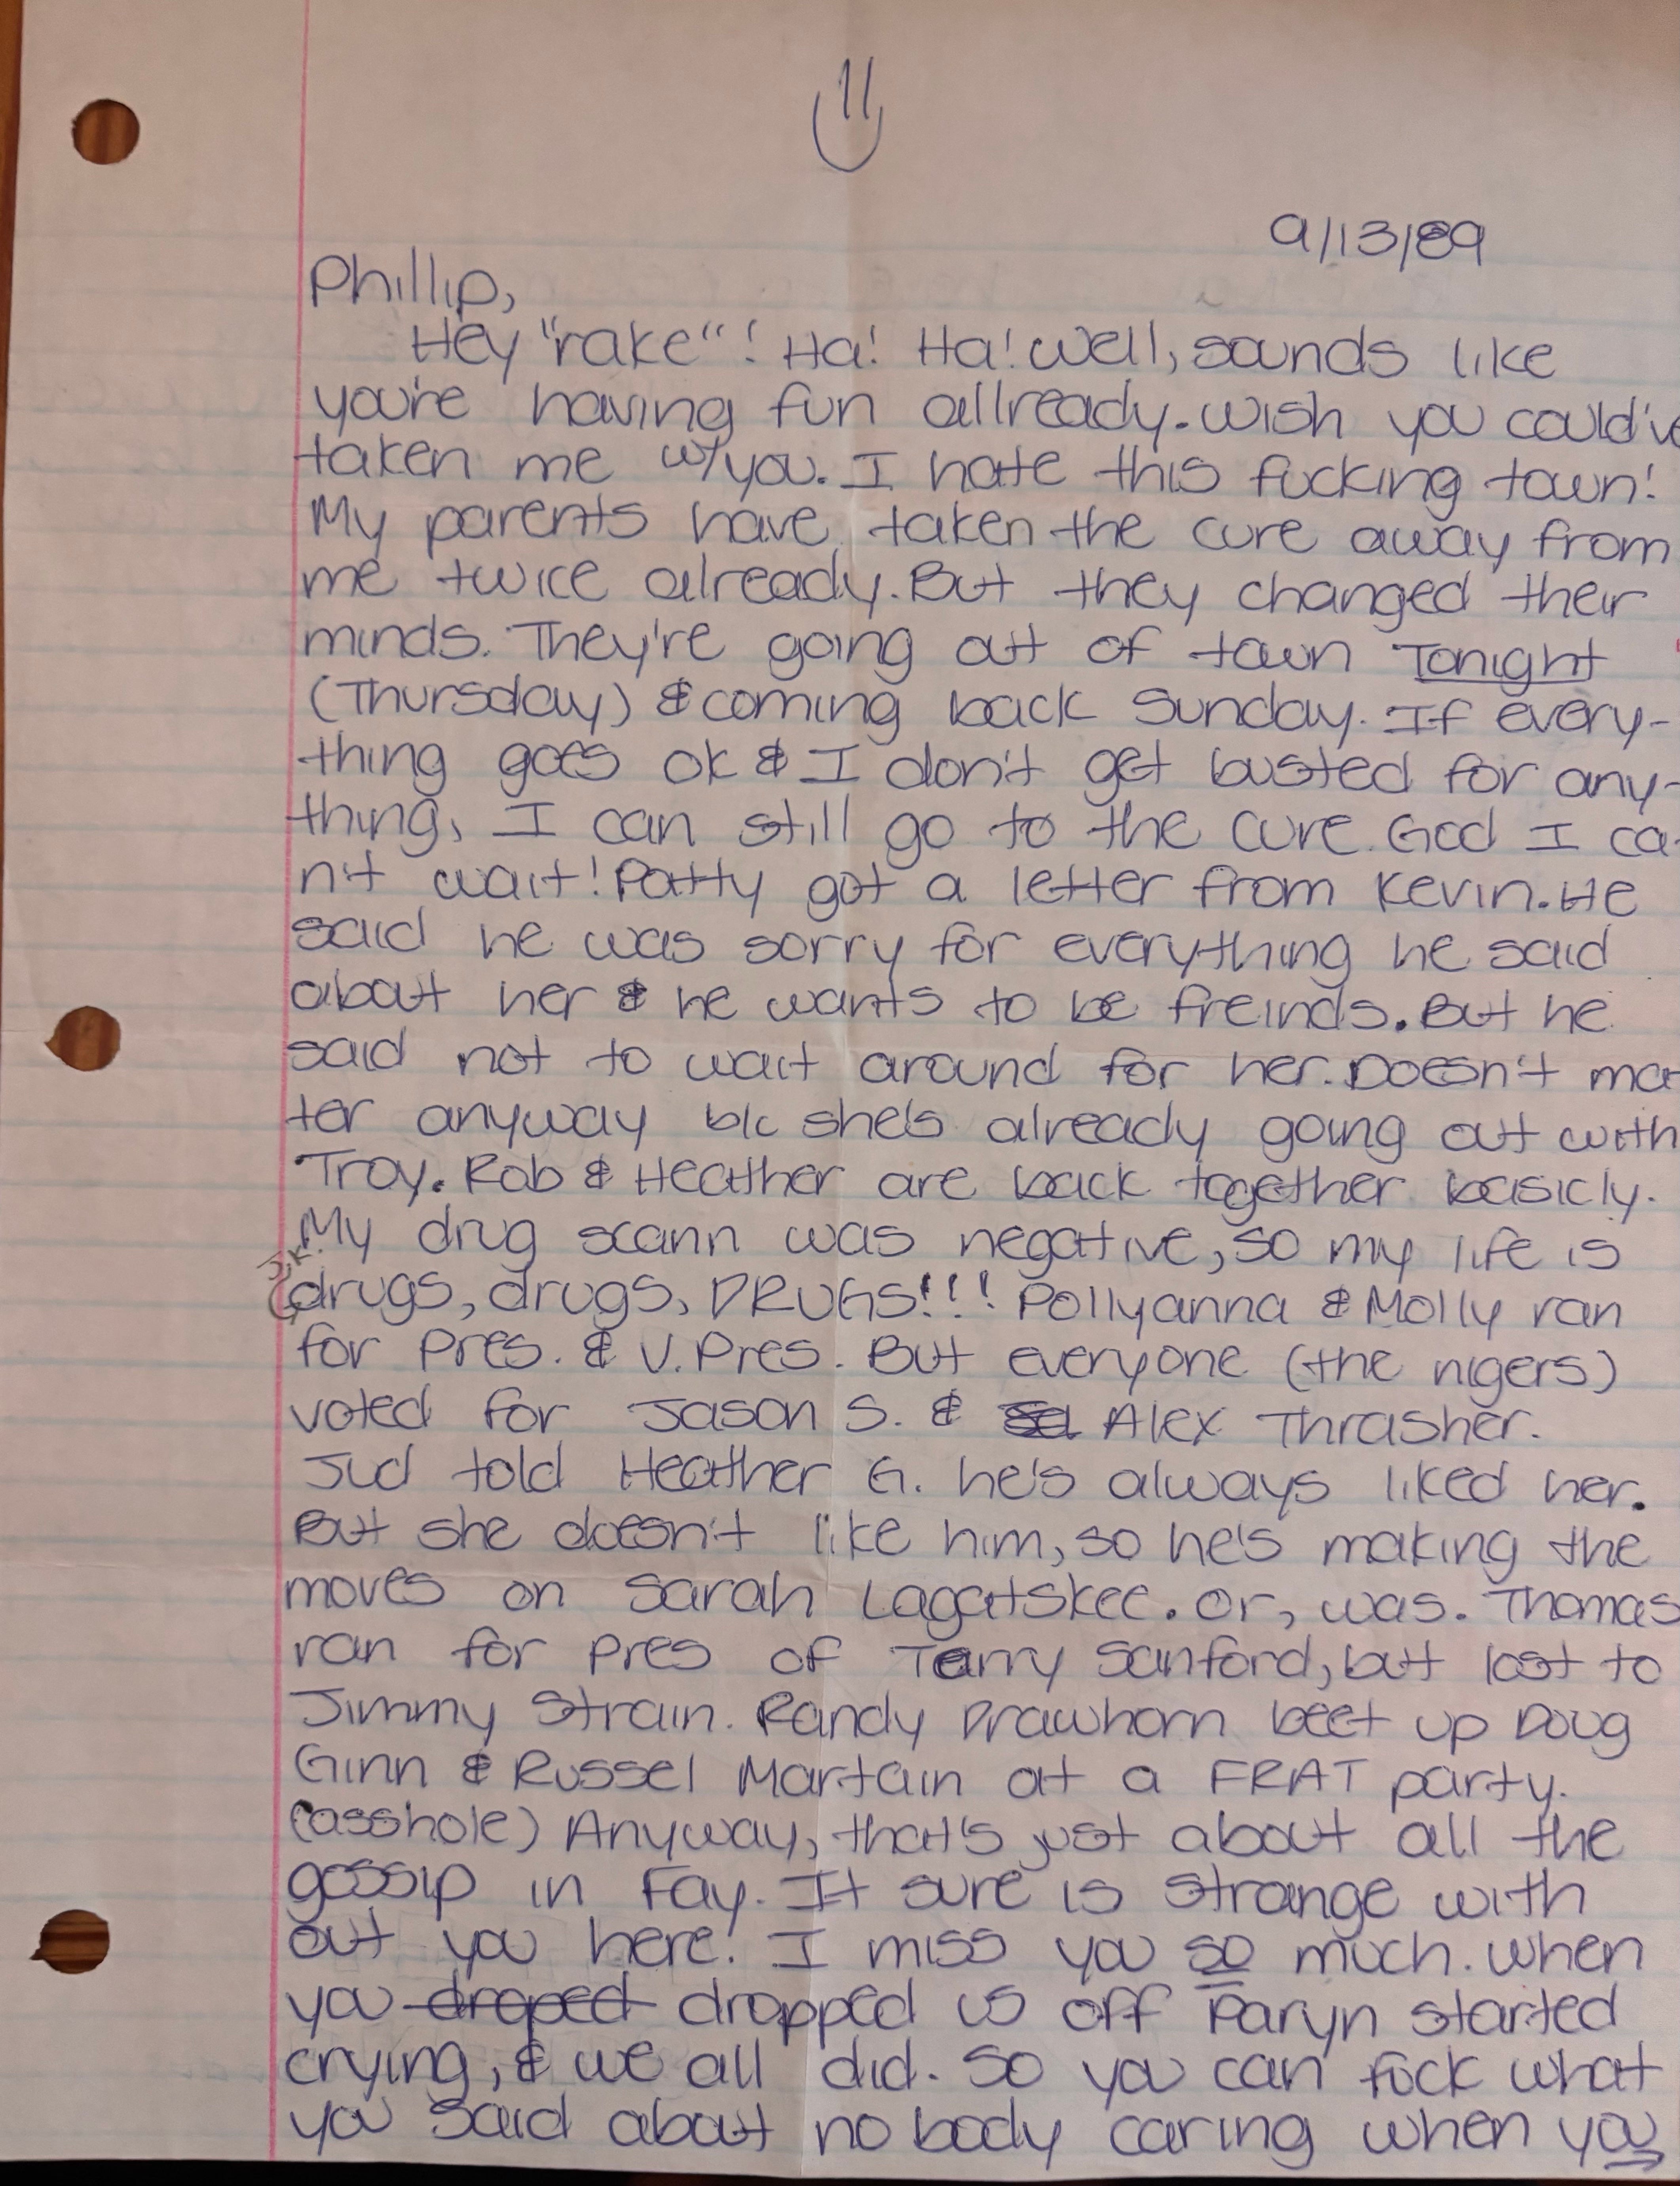 9/13/89
Phillip,
Hey "rake"! Ha! Ha! Well, sounds like
you're having fun allready. Wish you could've
taken me w/you. I hate this fucking town!
My parents have taken the cure away from
me twice already. But they changed their
minds. They're going out of town Tonight
(Thursday) & coming back Sunday. If every-
thing goes ok & I don't get busted for any-
thing, I can still go to the Cure. God I ca-
n't wait! Patty got a letter from Kevin. He
said he was sorry for everything he said
about her & he wants to be freinds. But he
said not to wait around for her. Doesn't mat
ter anyway b/c she's already going out with
Troy. Rob & Heather are back together basicly.
My drug scann was negative, so my life is
J.K. drugs, drugs, DRUGS!!! Pollyanna & Molly ran
for Pres. & V. Pres. But everyone (the nigers)
voted for Jason S. & Alex Thrasher.
Jud told Heather G. he's always liked her.
But she doesn't like him, so he's making the
moves on Sarah Lagatskee. Or, was. Thomas
ran for pres of Terry Sanford, but lost to
Jimmy Strain. Randy Drawhorn beet up Doug
Ginn & Russel Martain at a FRAT party.
(asshole) Anyway, that's just about all the
gossip in Fay. It sure is strange with
out you here! I miss you so much. When
you droped dropped us off Faryn started
crying, & we all did. So you can fuck what
you said about no body caring when you